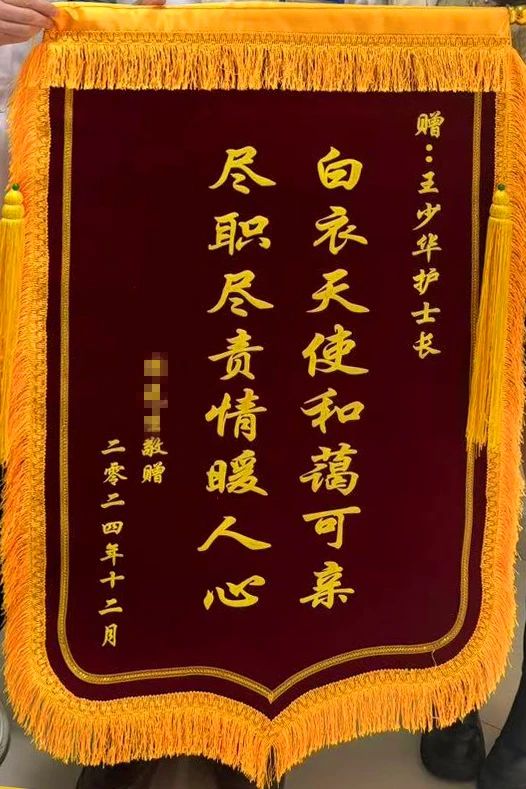 赠:王少华护士长
白衣天使和蔼可亲
尽职尽责情暖人心
敬赠
二零二四年十二月